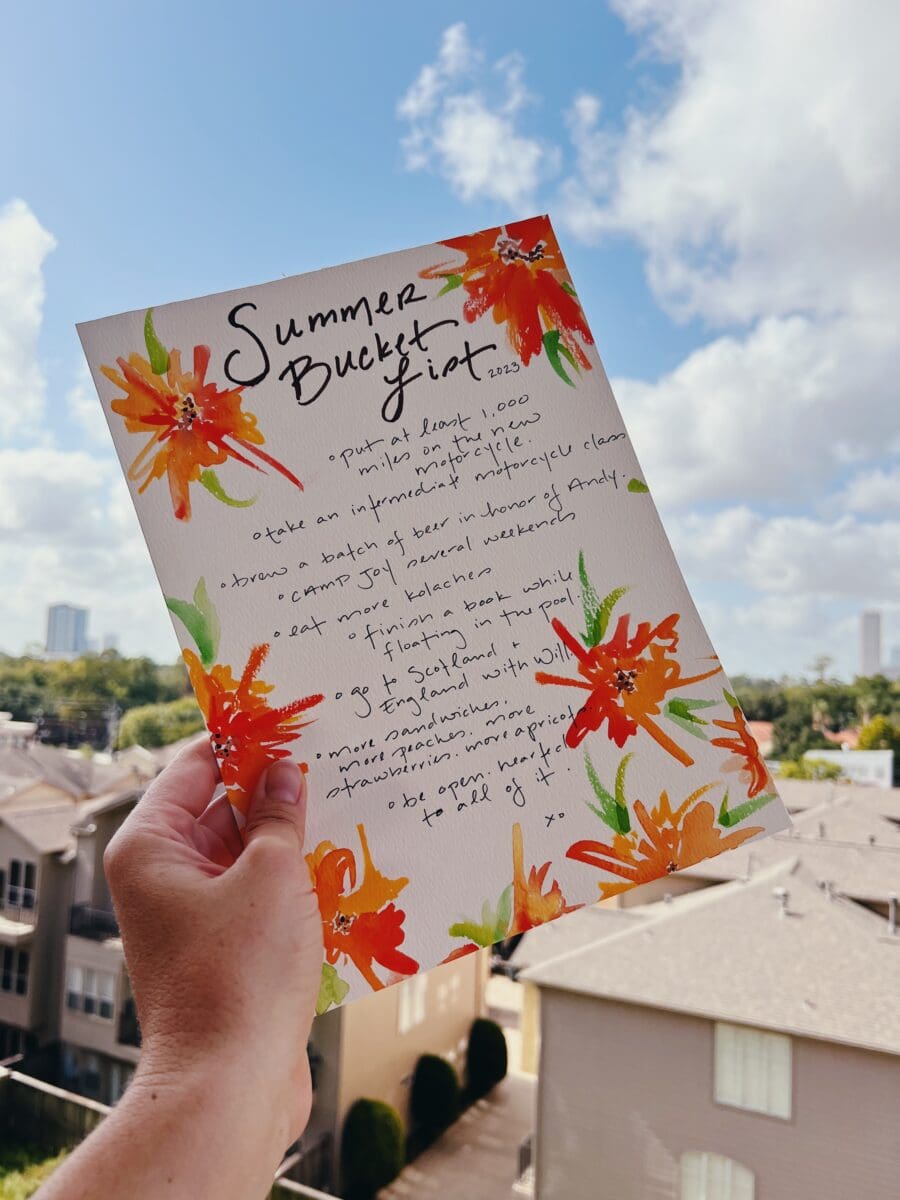 Summer
Bucket
List 2023
◦ put at least 1,000
miles on the new
motorcycle.
◦ take an intermediate motorcycle class
◦ brew a batch of beer in honor of Andy.
◦ CAMP JOY several weekends
◦ eat more kolaches
◦ finish a book while
floating in the pool.
◦ go to Scotland +
England with Will.
◦ more sandwiches.
more peaches. more
strawberries. more apricots
◦ be open-hearted
to all of it.
xo